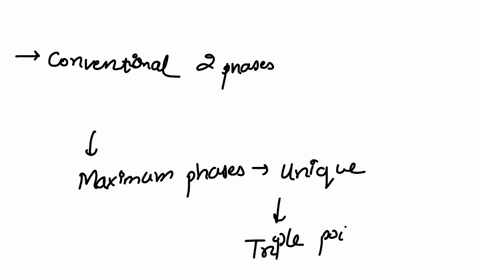 → Conventional 2 phases
↓
Maximum phases → Unique
↓
Triple poi